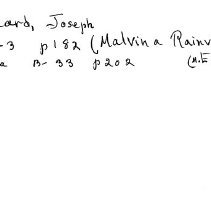 eard, Joseph
-3 p182 (Malvina Rainv
a B-33 p202 (M.E